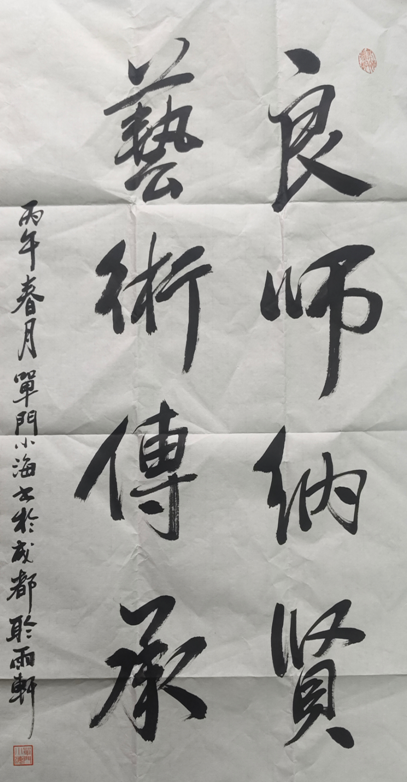 良师纳贤
藝術傳承
丙午春月單門小海书於成都聆雨軒